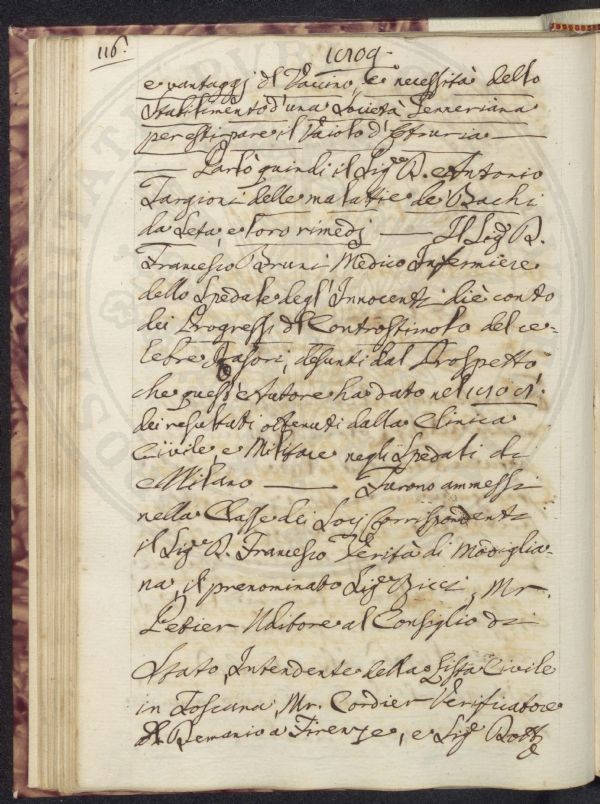 116.
1809.
e vantaggj del Vaccino, e necessità dello
Stabilimento d'una Società Jenneriana
per estirpare il Vaiolo d'Etruria —
— Parlò quindi il Sig.e D. Antonio
Targioni delle malattie de Bachi
da Seta, e loro rimedj — Il Sig.e D.
Francesco Bruni Medico Infermiere
dello Spedale degl'Innocenti diè conto
dei Progressi del Controstimolo del ce=
lebre Rasori, desunti dal Prospetto
che quest'Autore ha dato nel
dei resultati ottenuti dalla Clinica
Civile, e Militare negli Spedali di
Milano — Furono ammessi
nella Classe dei Socj Corrispondenti
il Sig.e D. Francesco Verità di Modiglia=
na, il prenominato Sig.e Ricci, Mr.
Uditore al Consiglio di
Stato, Intendente della Lista Civile
in Toscana, Mr. Cordier Verificatore
del Demanio a Firenze, e Sig.e